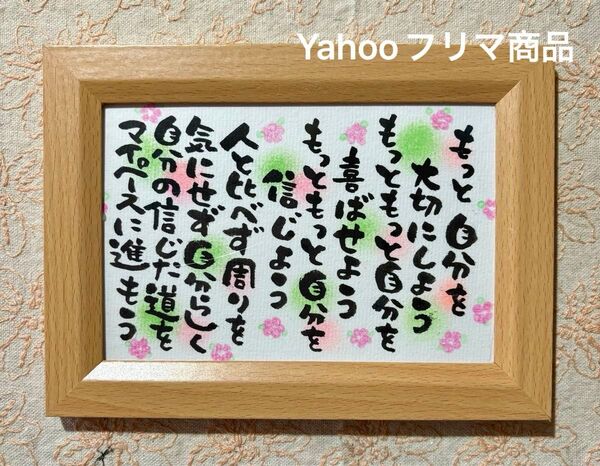 Yahooフリマ商品
もっと自分を
大切にしよう
もっともっと自分を
喜ばせよう
もっともっと自分を
信じよう
人と比べず周りを
気にせず自分らしく
自分の信じた道を
マイペースに進もう